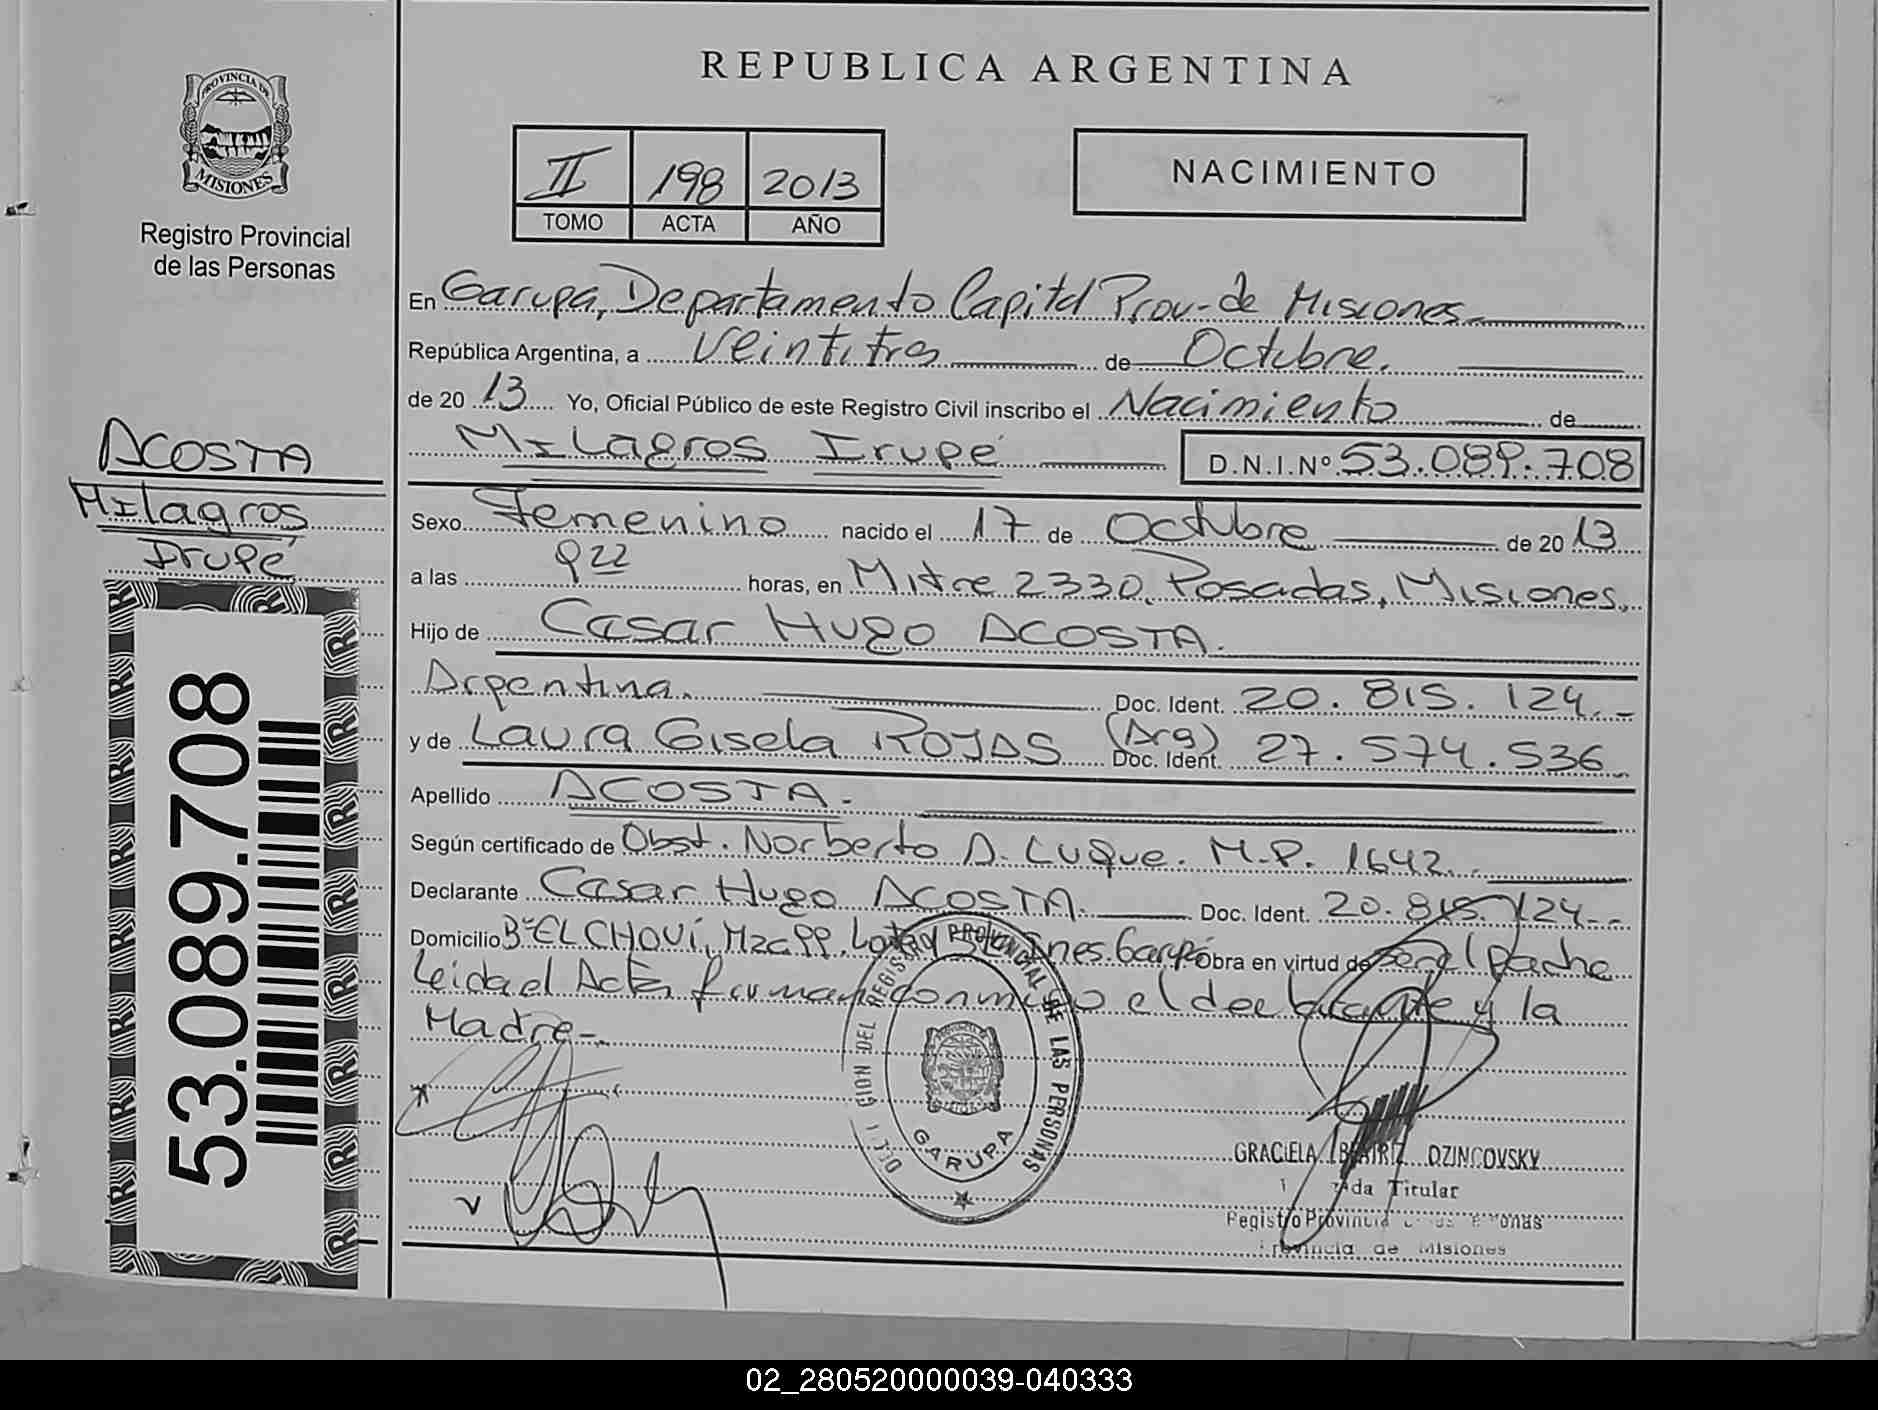 PROVINCIA DE
MISIONES
Registro Provincial
de las Personas
REPUBLICA ARGENTINA
II 198 2013
TOMO ACTA AÑO
NACIMIENTO
En Garupa, Departamento Capital Prov. de Misiones
República Argentina, a Veintitres de Octubre.
de 20 13 Yo, Oficial Público de este Registro Civil inscribo el Nacimiento de
Milagros Irupé D.N.I.Nº 53.089.708
ACOSTA
Milagros
Irupé
53.089.708
Sexo Femenino nacido el 17 de Octubre de 20 13
a las 9 22 horas, en Mitre 2330, Posadas, Misiones.
Hijo de Casar Hugo ACOSTA.
Argentina. Doc. Ident. 20.815.124.-
y de Laura Gisela ROJAS (Arg) Doc. Ident. 27.574.536
Apellido ACOSTA.-
Según certificado de Obst. Norberto A. Luque. M.P. 1642.-
Declarante Casar Hugo ACOSTA. Doc. Ident. 20.815.124.-
Domicilio Bº EL CHOVI, Mza 99. Garupá Obra en virtud de ser el padre
Leida el Acta firman conmigo el declarante y la
Madre-.
REGISTRO PROVINCIAL DE LAS PERSONAS
GARUPA
GRACIELA BEATRIZ DZINCOVSKY
Titular
Registro Provincial
Provincia de Misiones
02_280520000039-040333